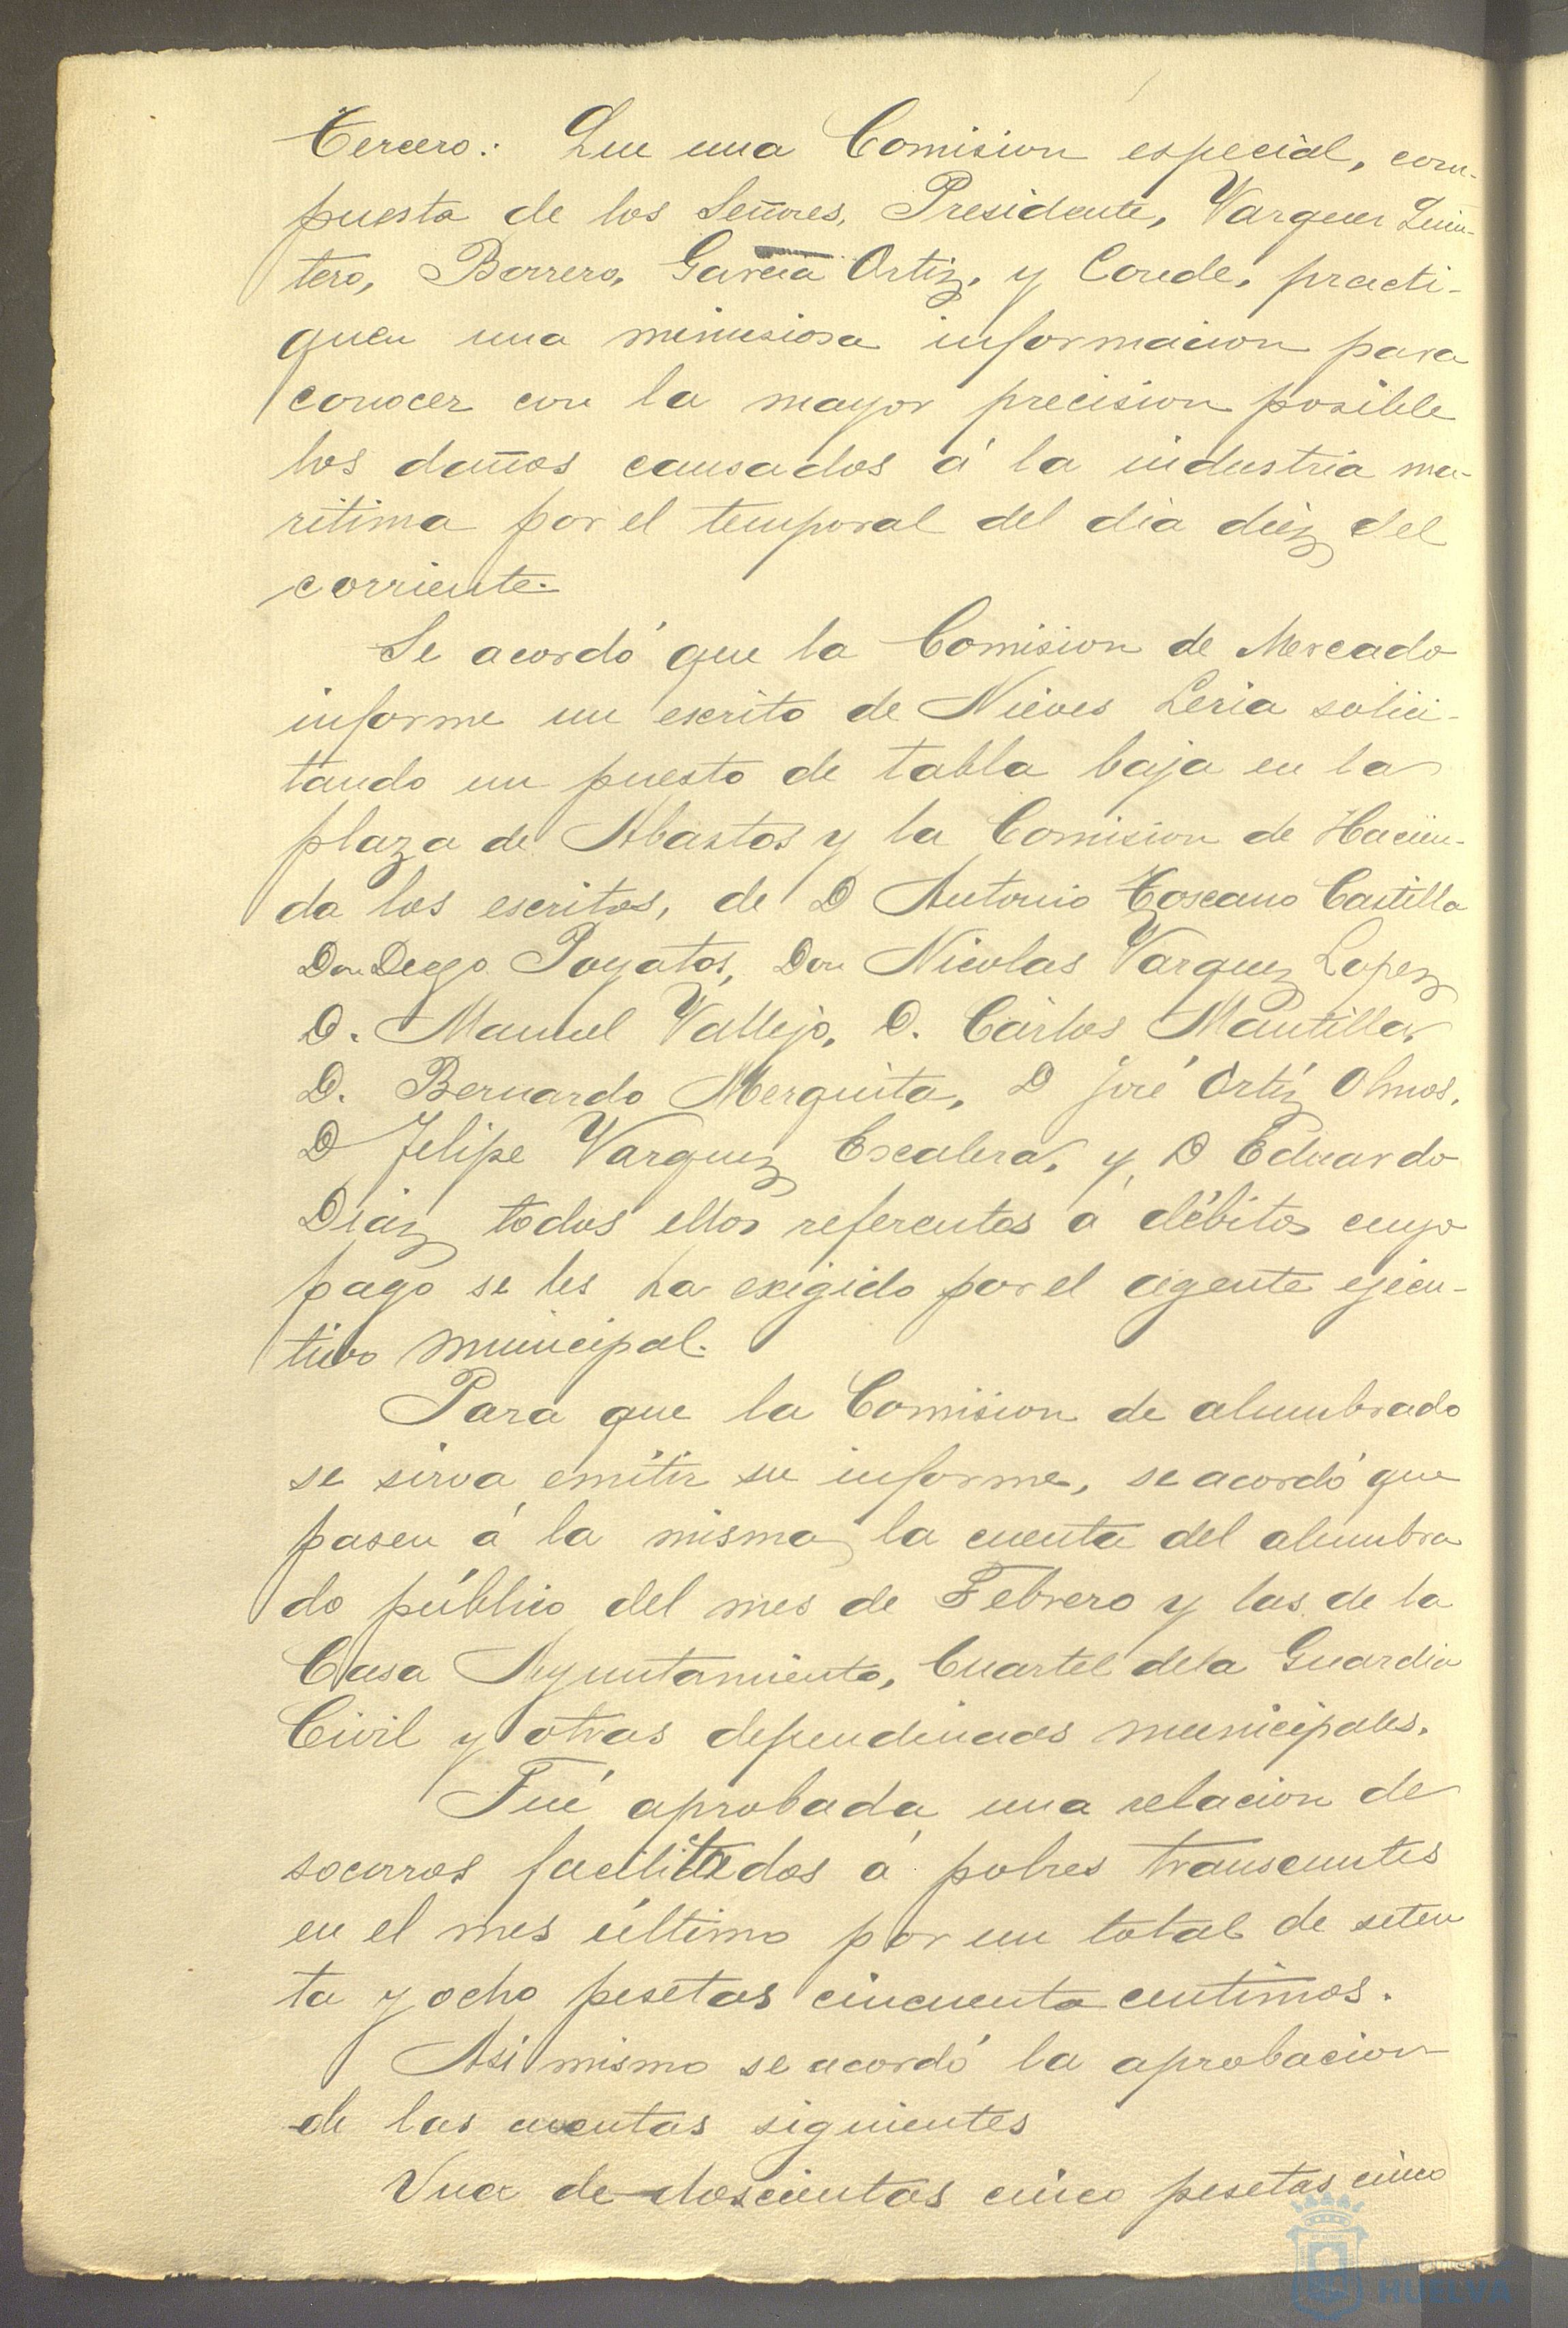 Tercero: Que una Comision especial, com-
puesta de los Señores, Presidente, Vazquez Quin-
tero, Borrero, Garcia Ortiz, y Conde, practi-
quen una minusiosa informacion para
conocer con la mayor precision posible
los daños causados á la industria ma-
ritima por el temporal del dia diez del
corriente.
Se acordó que la Comision de Mercado
informe un escrito de Nieves Leria solici-
tando un puesto de tabla baja en la
plaza de Abastos y la Comision de Hacien-
da los escritos, de D Antonio Toscano Castilla
Don Diego Poyatos, Don Nicolas Vazquez Lopez
D. Manuel Vallejo, D. Cárlos Mantilla,
D. Bernardo Merquita, D José Ortíz Olmos,
D Felipe Vazquez Escalera, y D Eduardo
Diaz todos ellos referentes á débitos cuyo
pago se les ha exigido por el agente ejecu-
tivo municipal.
Para que la Comision de alumbrado
se sirva emitir su informe, se acordó que
pasen á la misma la cuenta del alumbra
do público del mes de Febrero y las de la
Casa Ayuntamiento, Cuartel dela Guardia
Civil y otras dependencias municipales.
Fué aprobada una relacion de
socorros facilitados á pobres transeuntes
en el mes último por un total de seten
ta y ocho pesetas cincuenta centimos.
Asi mismo se acordó la aprobacion
de las cuentas siguientes
Una de doscientas cinco pesetas cinco
HUELVA